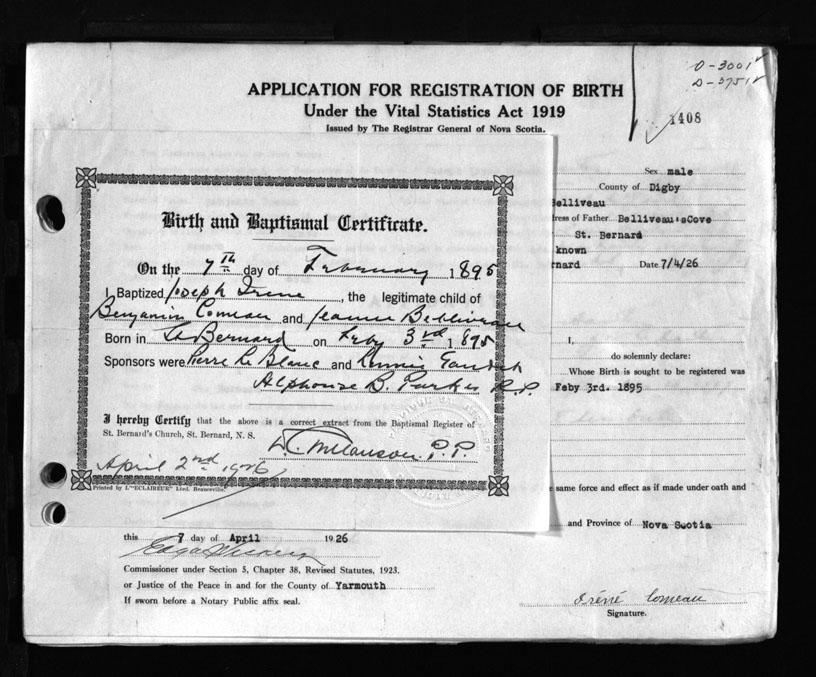 O-3001
D-3751
APPLICATION FOR REGISTRATION OF BIRTH
Under the Vital Statistics Act 1919
Issued by The Registrar General of Nova Scotia.
1408
Sex male
County of Digby
Belliveau
ress of Father Belliveau'sCove
St. Bernard
known
rnard Date 7/4/26
Birth and Baptismal Certificate.
On the 7th day of February 1895
I Baptized Joseph Irene, the legitimate child of
Benjamin Comeau and Jeanne Belliveau
Born in St Bernard on Feby 3rd 1895
Sponsors were Pierre Le Blanc and Annie Gaudet
Alphonse B. Parker P.P.
I hereby Certify that the above is a correct extract from the Baptismal Register of
St. Bernard's Church, St. Bernard, N. S.
Melanson P.P.
April 2nd, 1926
Printed by L'"ECLAIREUR" Lted. Beauceville.
I,
do solemnly declare:
Whose Birth is sought to be registered was
Feby 3rd. 1895
same force and effect as if made under oath and
and Province of Nova Scotia
this 7 day of April 1926
Commissioner under Section 5, Chapter 38, Revised Statutes, 1923.
or Justice of the Peace in and for the County of Yarmouth
If sworn before a Notary Public affix seal.
Iréné Comeau
Signature.